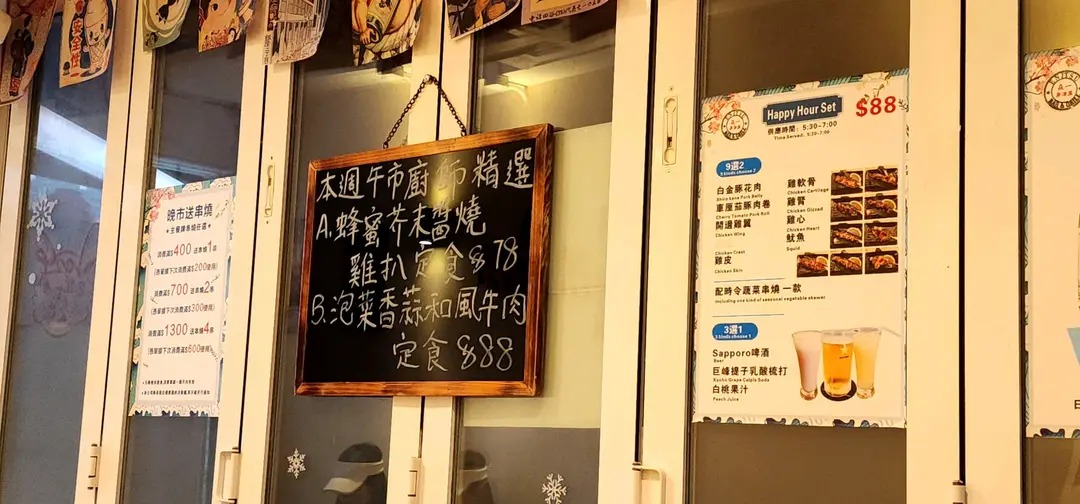 安全性
晚市送串燒
消費滿$400 送串燒1客
(憑單據下次消費滿$200使用)
消費滿$700 送串燒2客
(憑單據下次消費滿$300使用)
消費滿$1300 送串燒4客
(憑單據下次消費滿$600使用)
本週午市廚師精選
A.蜂蜜芥末醬燒
雞扒定食$78
B.泡菜香蒜和風牛肉
定食$88
Happy Hour Set
$88
供應時間：5:30-7:00
Time Served: 5:30-7:00
9選2
9 kinds choose 2
白金豚花肉
Shiro kane Pork Belly
車厘茄豚肉卷
Cherry Tomato Pork Roll
開邊雞翼
Chicken Wing
Chicken Crest
雞皮
Chicken Skin
雞軟骨
Chicken Cartilage
雞腎
Chicken Gizzard
雞心
Chicken Heart
魷魚
Squid
配時令蔬菜串燒 一款
Including one kind of seasonal vegetable skewer
3選1
3 kinds choose 1
Sapporo啤酒
Beer
巨峰提子乳酸梳打
Kyoho Grape Calpis Soda
白桃果汁
Peach Juice